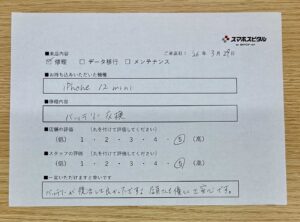 スマホスピタル
■来品内容 ご来店日: 26年 3月29日
☑修理 □データ移行 □メンテナンス
■お持ち込みいただいた機種
iPhone 12 mini
■修理内容
バッテリー交換
■店舗の評価 (丸を付けて評価してください)
(低) 1 ・ 2 ・ 3 ・ 4 ・ 5 (高)
■スタッフの評価 (丸を付けて評価してください)
(低) 1 ・ 2 ・ 3 ・ 4 ・ 5 (高)
■一言いただけますと幸いです
バッテリーが復活して良かったです。